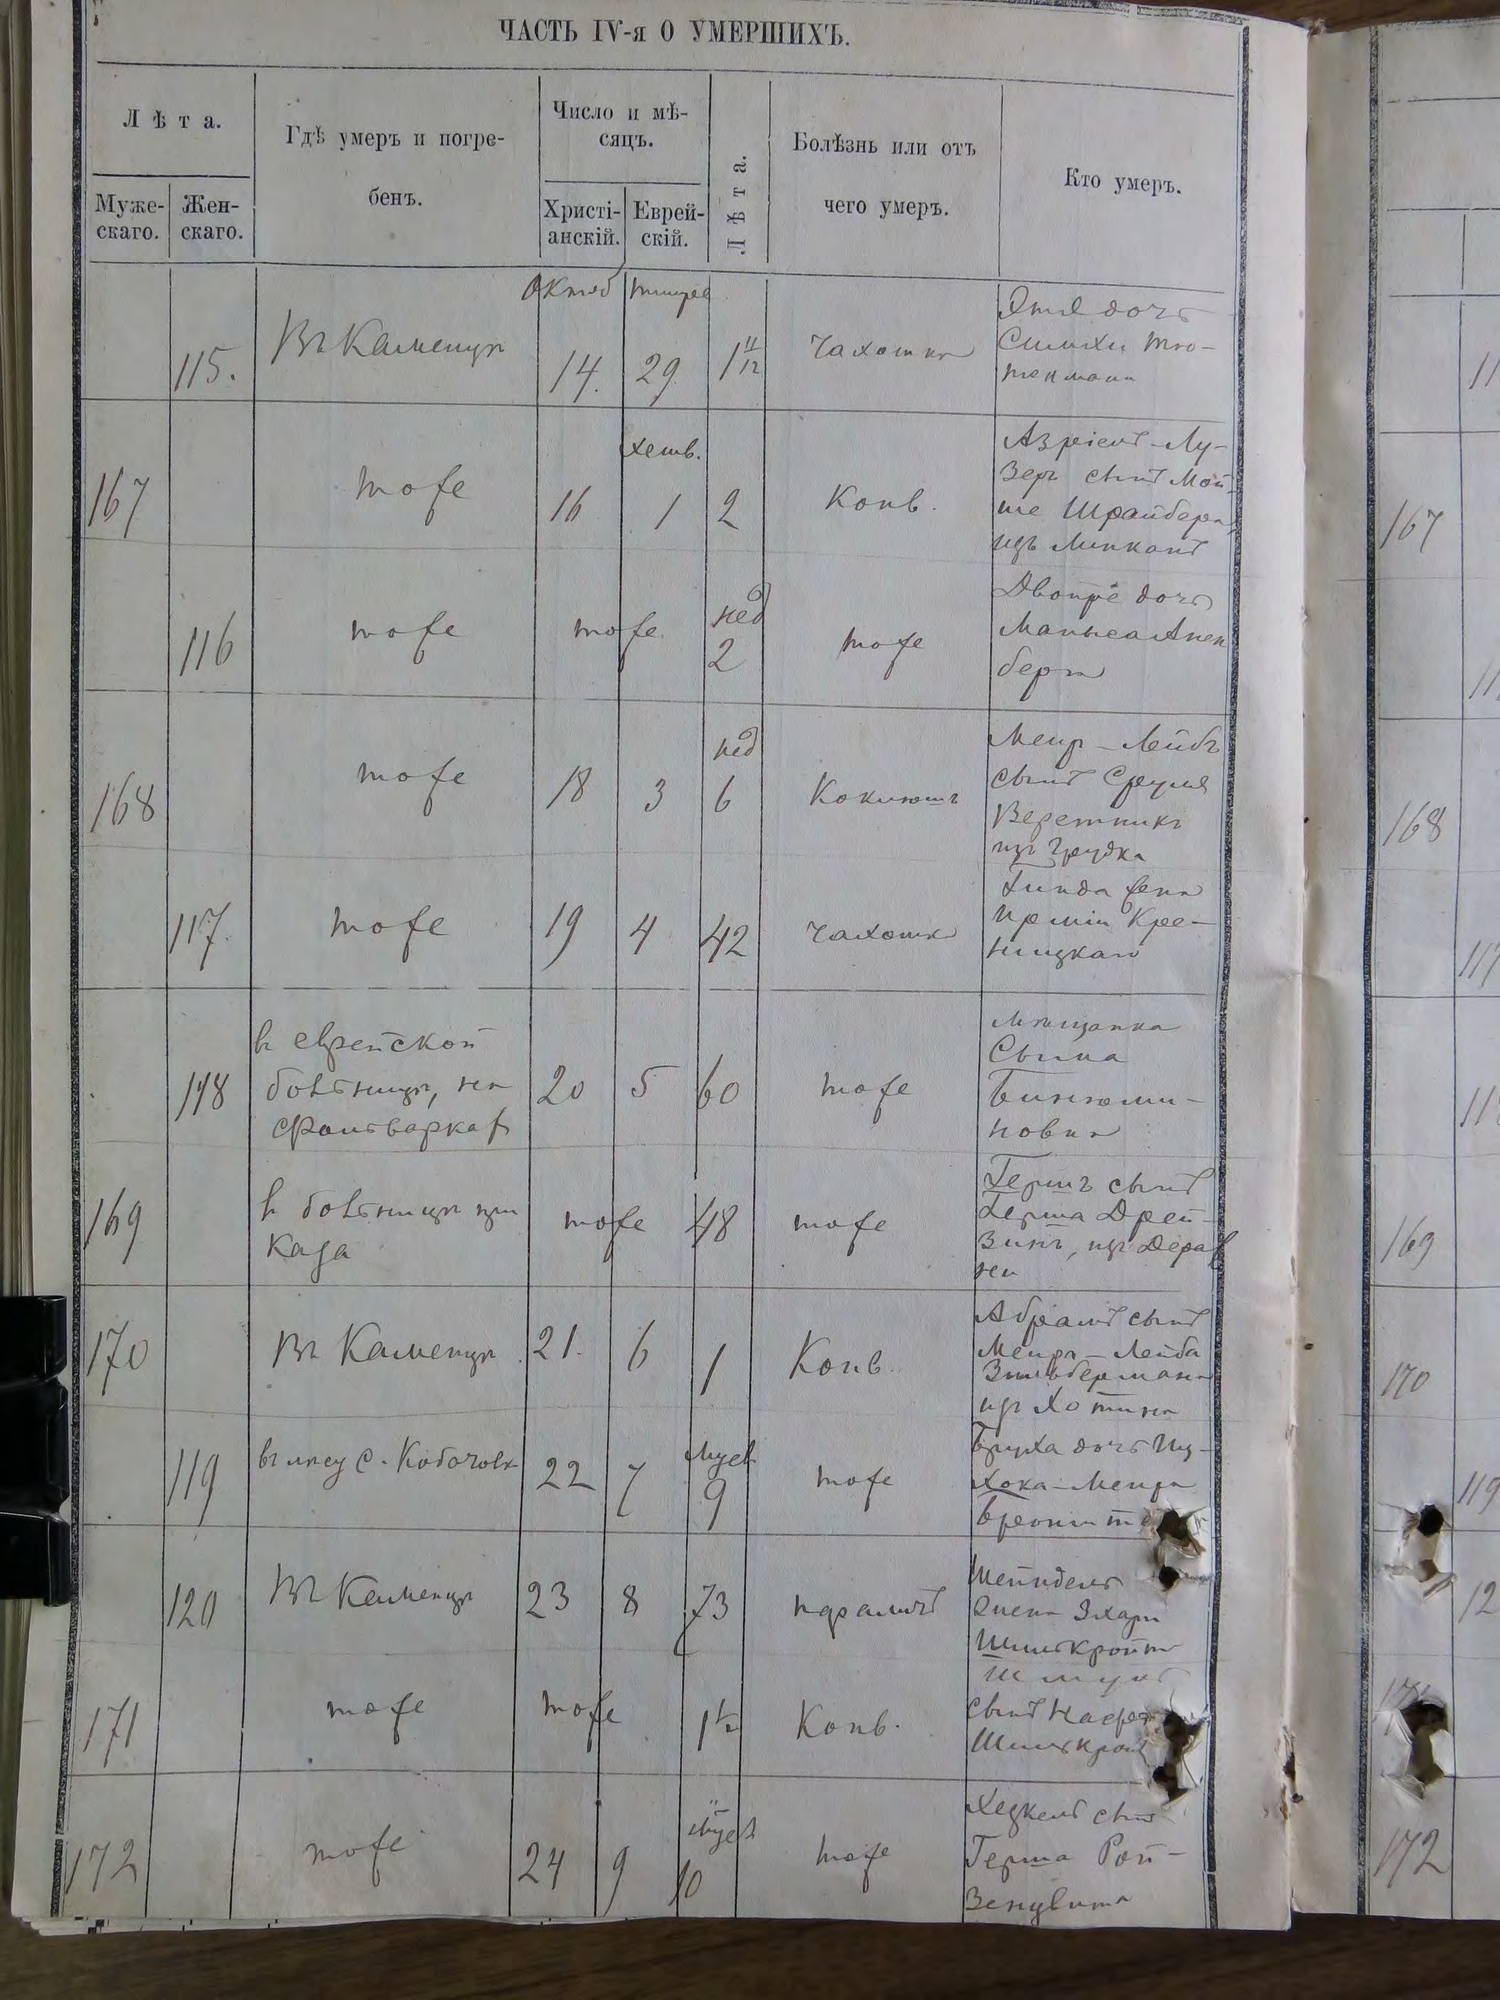 ЧАСТЬ IV-я О УМЕРШИХЪ.
Лѣта.
Муже-
скаго.
Жен-
скаго.
Гдѣ умеръ и погре-
бенъ.
Число и мѣ-
сяцъ.
Христі-
анскій.
Еврей-
скій.
Лѣта.
Болѣзнь или отъ
чего умеръ.
Кто умеръ.
Октяб
тишре
115.
Въ Каменцѣ
14.
29
1 11/12
Чахотка
дочь
Симхи
167
тоже
16
хешв.
1
2
Конв.
Азріель-Лу-
зеръ сынъ Мой-
ше Шрайбера
изъ Липканъ
116
тоже
тоже
нед
2
тоже
Двойре дочь
берга
168
тоже
18
3
нед
6
Коклюшъ
Меир-Лейбъ
сынъ Сруля
Веретникъ
изъ Грудка
117.
тоже
19
4
42
Чахотка
жена
Кре-
ницкаго
118
въ еврейской
больницѣ, на
фольваркахъ
20
5
60
тоже
мѣщанка
Сыма
Бинюми-
нова
169
въ больницѣ при
каза
тоже
48
тоже
Гершъ сынъ
Герша Дрей-
зинъ, изъ Дераж
ни
170
Въ Каменцѣ
21.
6
1
Конв.
Абрамъ сынъ
Меира-Лейба
Зильбермана
изъ Хотина
119
въ лѣсу с.
22
7
мѣсяц
9
тоже
Бруха дочь Иц-
хока-Меира
120
Въ Каменцѣ
23
8
73
Шейндель
жена
Шилькройт
171
тоже
тоже
1½
Конв.
Шмуль
сынъ
Шилькрой
172
тоже
24
9
мѣсяц
10
тоже
Хецкель сынъ
Герша Рой-
167
168
169
170
119
172